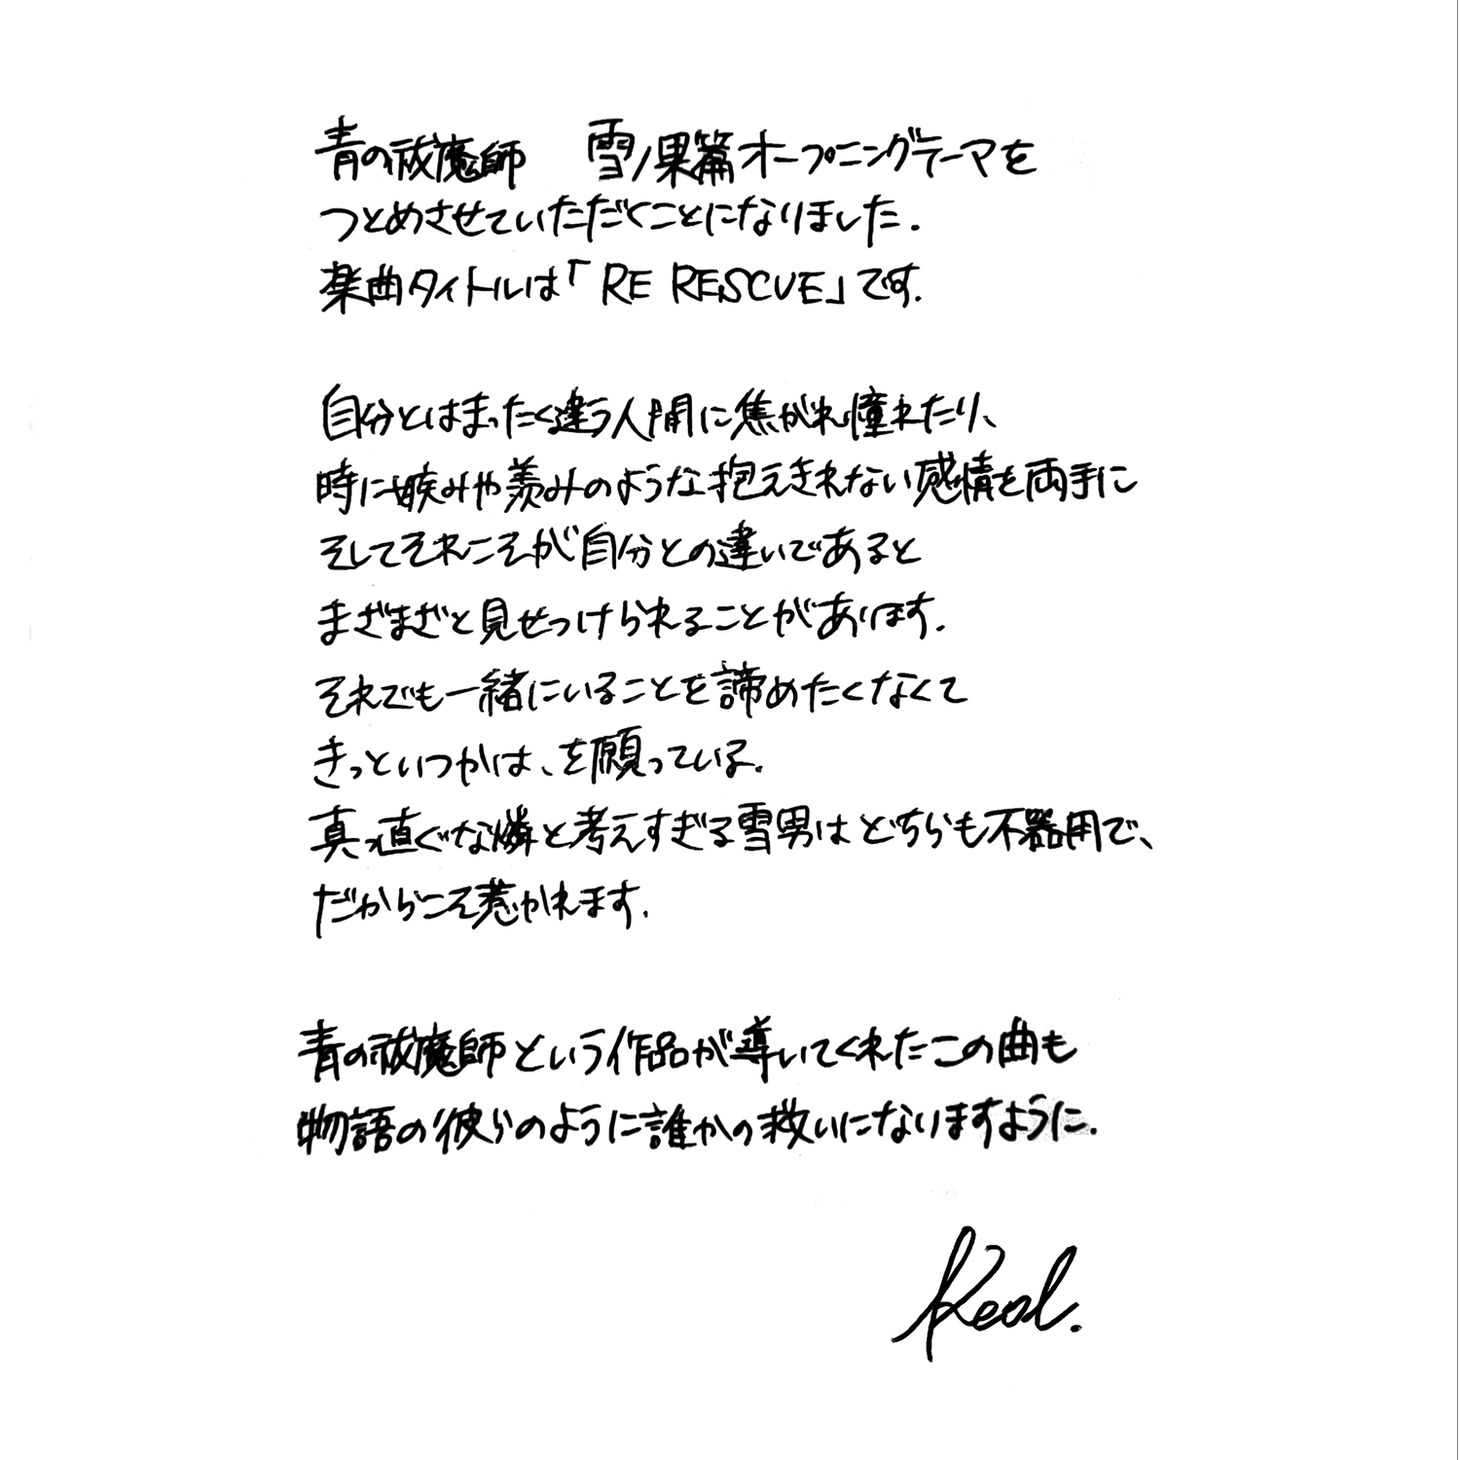 青の祓魔師　雪ノ果篇オープニングテーマを
つとめさせていただくことになりました.
楽曲タイトルは「RE RESCUE」です.
自分とはまったく違う人間に焦がれ憧れたり、
時に嫉みや羨みのような抱えきれない感情を両手に
そしてそれこそが自分との違いであると
まざまざと見せつけられることがあります.
それでも一緒にいることを諦めたくなくて
きっといつかは、を願っている.
真っ直ぐな燐と考えすぎる雪男はどちらも不器用で、
だからこそ惹かれます.
青の祓魔師という作品が導いてくれたこの曲も
物語の彼らのように誰かの救いになりますように.
Reol.